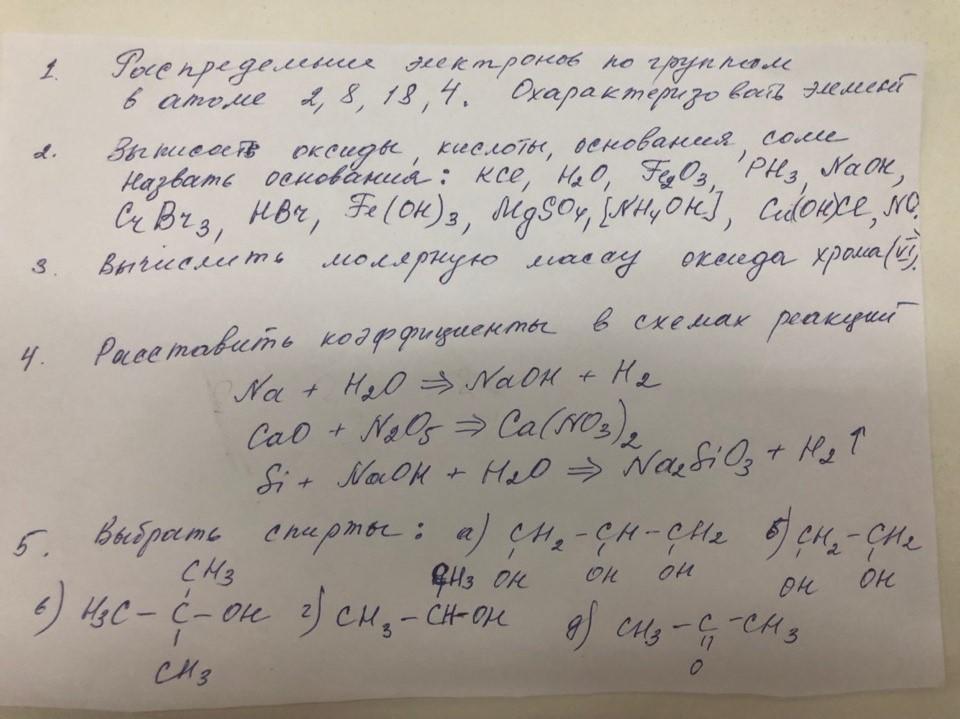 1. Распределение электронов по группам
в атоме 2, 8, 18, 4. Охарактеризовать элемент
2. Выписать оксиды, кислоты, основания, соли
Назвать основания: HCl, H2O, Fe2O3, PH3, NaOH,
CrBr3, HBr, Fe(OH)3, MgSO4, [NH4OH], Cu(OH)Cl, NO.
3. Вычислить молярную массу оксида хрома (VI).
4. Расставить коэффициенты в схемах реакций
Na + H2O ⇒ NaOH + H2
CaO + N2O5 ⇒ Ca(NO3)2
Si + NaOH + H2O ⇒ Na2SiO3 + H2↑
5. Выбрать спирты: а) CH2 - CH - CH2 б) CH2 - CH2
OH OH OH OH OH
CH3 CH3
в) H3C - C - OH г) CH3 - CH-OH д) CH3 - C - CH3
CH3 O